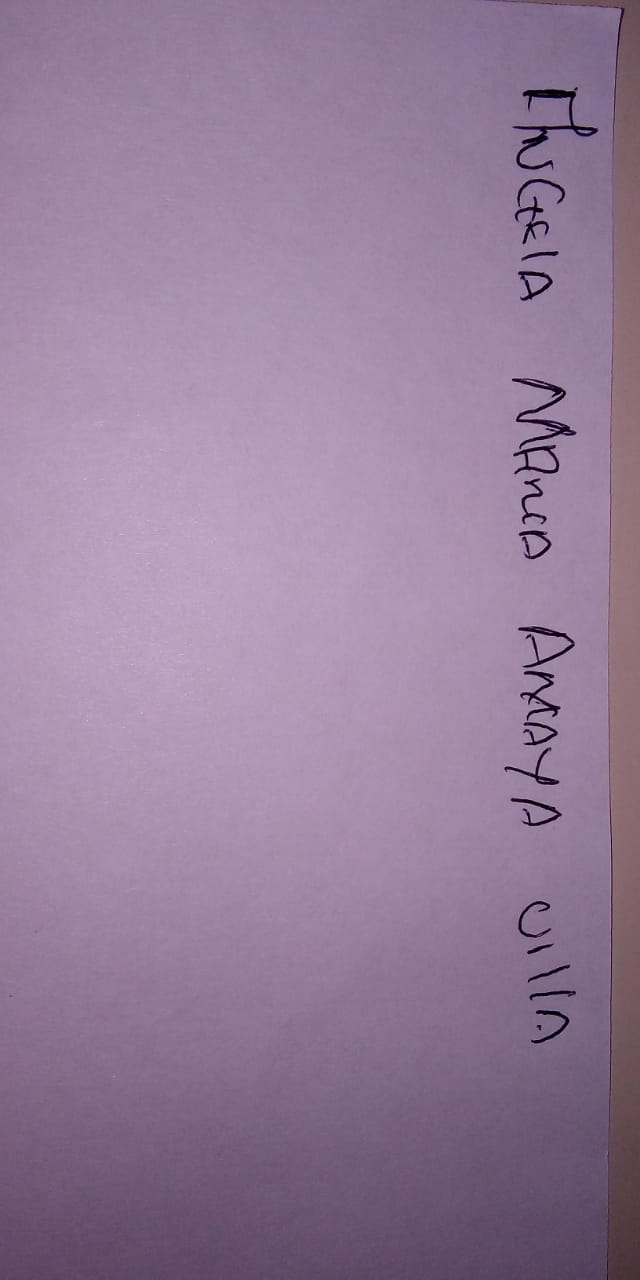 Angela Maria Amaya villa